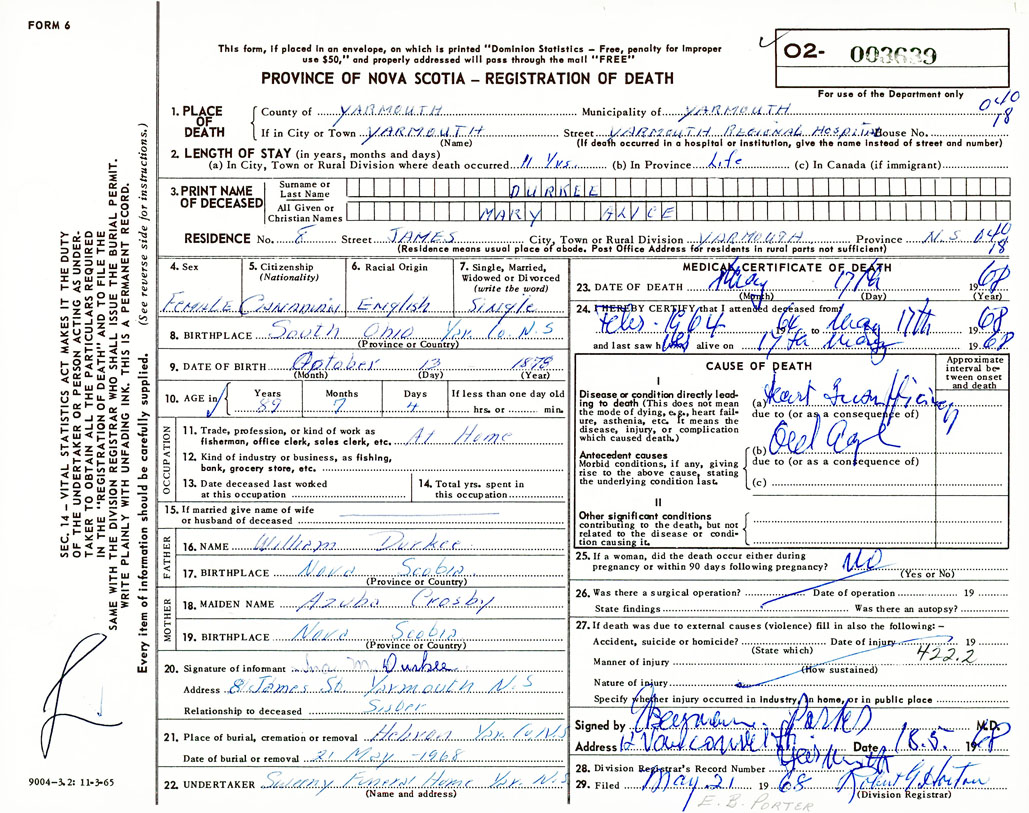 FORM 6
This form, if placed in an envelope, on which is printed "Dominion Statistics – Free, penalty for improper
use $50," and properly addressed will pass through the mail "FREE"
PROVINCE OF NOVA SCOTIA – REGISTRATION OF DEATH
O2- 003639
For use of the Department only
1. PLACE OF DEATH
County of YARMOUTH Municipality of YARMOUTH 040
18
If in City or Town YARMOUTH Street YARMOUTH REGIONAL HOSPITAL House No.
(Name) (If death occurred in a hospital or institution, give the name instead of street and number)
2. LENGTH OF STAY (in years, months and days)
(a) In City, Town or Rural Division where death occurred 11 Yrs. (b) In Province Life (c) In Canada (if immigrant)
3. PRINT NAME OF DECEASED
Surname or Last Name DURKEE
All Given or Christian Names MARY ALICE
RESIDENCE No. 8 Street JAMES City, Town or Rural Division YARMOUTH Province N.S 040
18
(Residence means usual place of abode. Post Office Address for residents in rural parts not sufficient)
4. Sex
FEMALE
5. Citizenship
(Nationality)
CANADIAN
6. Racial Origin
English
7. Single, Married,
Widowed or Divorced
(write the word)
Single
8. BIRTHPLACE South Ohio Yar. Co. N.S
(Province or Country)
9. DATE OF BIRTH October 13 1878
(Month) (Day) (Year)
10. AGE in Years Months Days If less than one day old
89 7 4 hrs. or min.
OCCUPATION
11. Trade, profession, or kind of work as
fisherman, office clerk, sales clerk, etc. At Home
12. Kind of industry or business, as fishing,
bank, grocery store, etc.
13. Date deceased last worked
at this occupation
14. Total yrs. spent in
this occupation
15. If married give name of wife
or husband of deceased
FATHER
16. NAME William Durkee
17. BIRTHPLACE Nova Scotia
(Province or Country)
MOTHER
18. MAIDEN NAME Azuba Crosby
19. BIRTHPLACE Nova Scotia
(Province or Country)
20. Signature of informant M. Durkee
Address 8 James St. Yarmouth N.S
Relationship to deceased Sister
21. Place of burial, cremation or removal Hebron Yar. Co N.S
Date of burial or removal 21 May - 1968
22. UNDERTAKER Sweeny Funeral Home Yar. N.S
(Name and address)
MEDICAL CERTIFICATE OF DEATH
23. DATE OF DEATH May 17th 1968
(Month) (Day) (Year)
24. I HEREBY CERTIFY that I attended deceased from
Feb. 1964 to May 17th 1968
and last saw her alive on 17th May 1968
CAUSE OF DEATH
Approximate interval between onset and death
I
Disease or condition directly leading to death (This does not mean
the mode of dying, e.g., heart failure, asthenia, etc. It means the
disease, injury, or complication
which caused death.)
(a) Heart Insufficiency
due to (or as a consequence of)
Antecedent causes
Morbid conditions, if any, giving
rise to the above cause, stating
the underlying condition last.
(b) Old Age
due to (or as a consequence of)
(c)
II
Other significant conditions
contributing to the death, but not
related to the disease or condition causing it.
25. If a woman, did the death occur either during
pregnancy or within 90 days following pregnancy? No
(Yes or No)
26. Was there a surgical operation? Date of operation 19
State findings Was there an autopsy?
27. If death was due to external causes (violence) fill in also the following: –
Accident, suicide or homicide? Date of injury 19
(State which) 422.2
Manner of injury
(How sustained)
Nature of injury
Specify whether injury occurred in industry, in home, or in public place
Signed by Porter M.D.
Address 12 Vancouver St Yarmouth Date 18.5. 1968
28. Division Registrar's Record Number
29. Filed May 21 1968 Robert G Horton
(Division Registrar)
E. B. PORTER
SEC. 14 – VITAL STATISTICS ACT MAKES IT THE DUTY
OF THE UNDERTAKER OR PERSON ACTING AS UNDER-
TAKER TO OBTAIN ALL THE PARTICULARS REQUIRED
IN THE "REGISTRATION OF DEATH" AND TO FILE THE
SAME WITH THE DIVISION REGISTRAR WHO SHALL ISSUE THE BURIAL PERMIT.
WRITE PLAINLY WITH UNFADING INK. THIS IS A PERMANENT RECORD.
Every item of information should be carefully supplied. (See reverse side for instructions.)
9004–3.2: 11-3-65